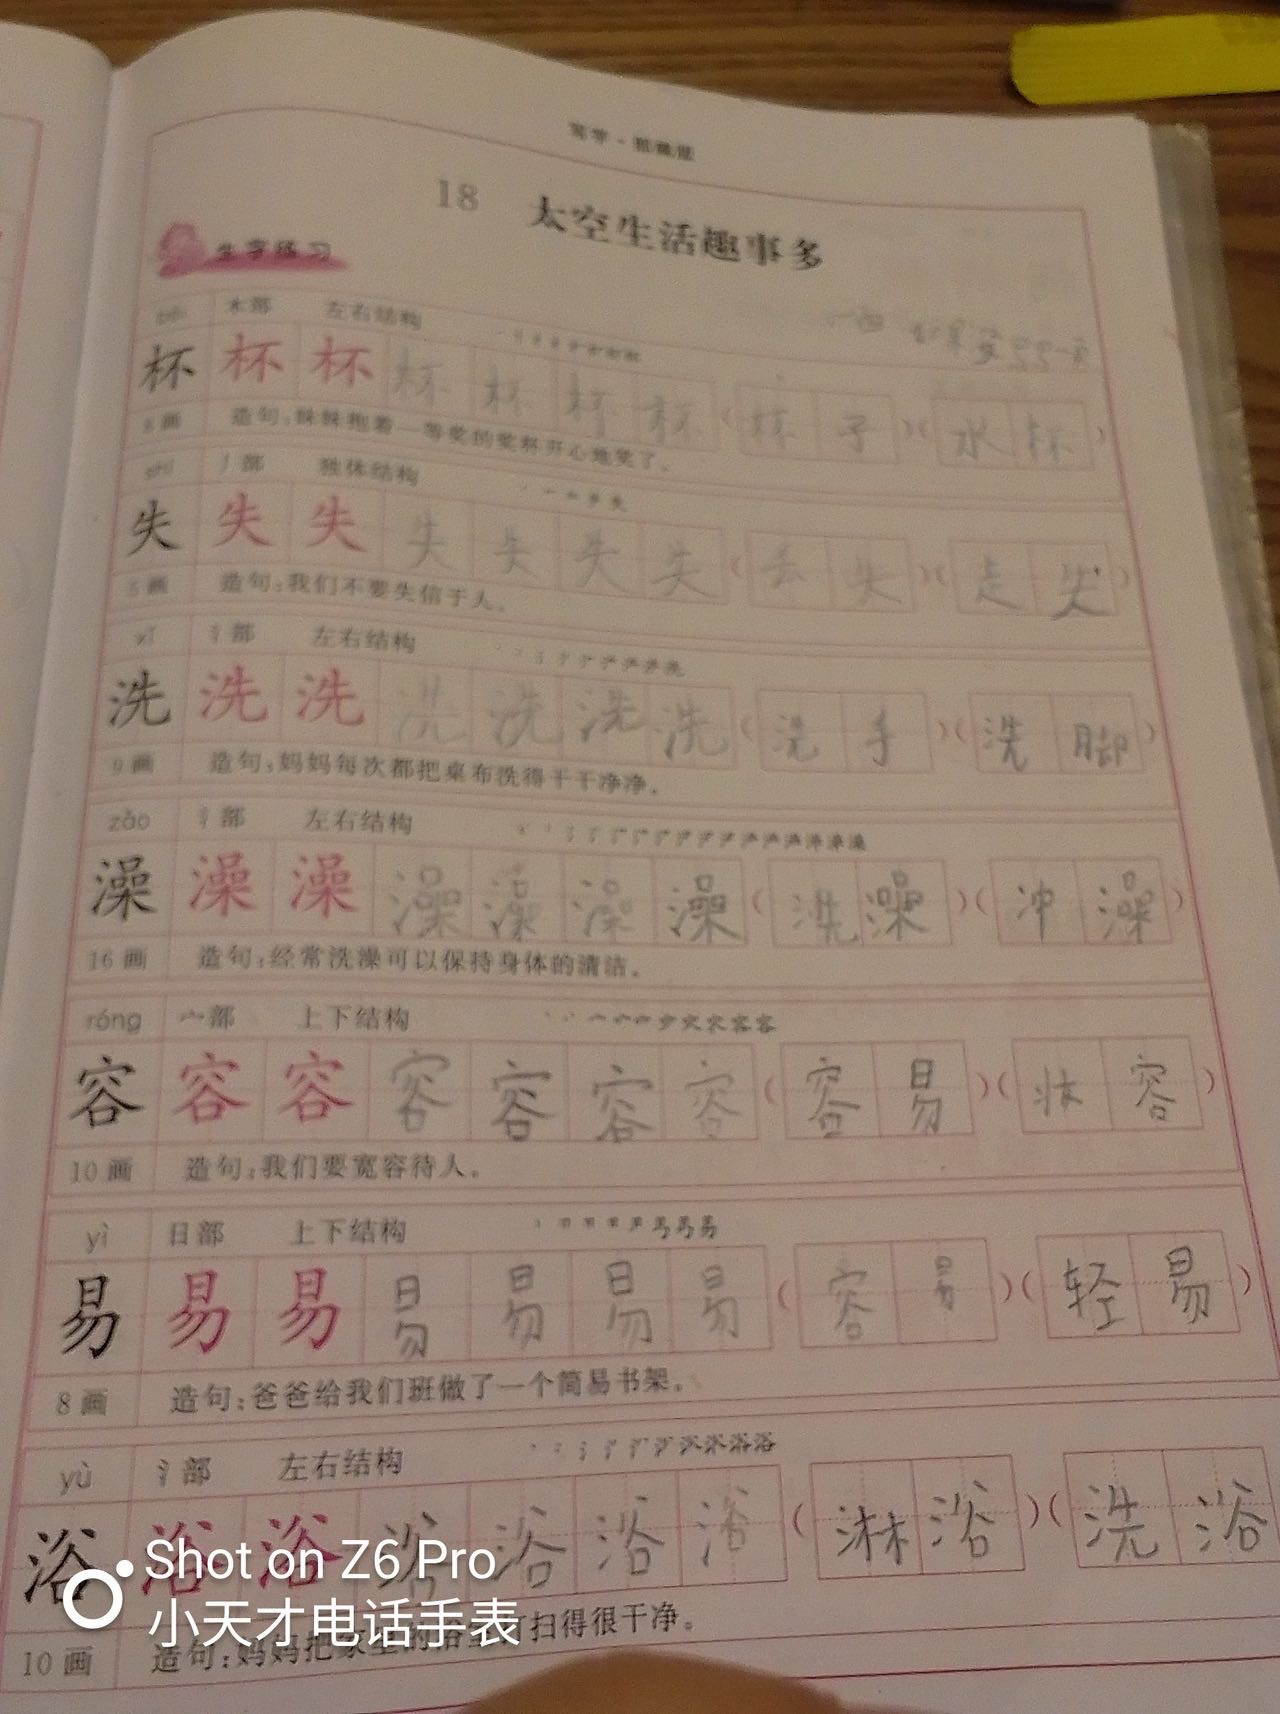 18 太空生活趣事多
生字练习
bēi 木部 左右结构
杯 杯 杯 杯 杯 杯 杯 (杯子)(水杯)
8画 造句:妹妹抱着一等奖的奖杯开心地笑了。
shī 丿部 独体结构
失 失 失 失 失 失 失 (丢失)(走失)
5画 造句:我们不要失信于人。
xǐ 氵部 左右结构
洗 洗 洗 洗 洗 洗 洗 (洗手)(洗脚)
9画 造句:妈妈每次都把桌布洗得干干净净。
zǎo 氵部 左右结构
澡 澡 澡 澡 澡 澡 澡 (洗澡)(冲澡)
16画 造句:经常洗澡可以保持身体的清洁。
róng 宀部 上下结构
容 容 容 容 容 容 容 (容易)(妆容)
10画 造句:我们要宽容待人。
yì 日部 上下结构
易 易 易 易 易 易 易 (容易)(轻易)
8画 造句:爸爸给我们班做了一个简易书架。
yù 氵部 左右结构
浴 浴 浴 浴 浴 浴 浴 (淋浴)(洗浴)
10画 造句:妈妈把家里的浴室打扫得很干净。
Shot on Z6 Pro
小天才电话手表